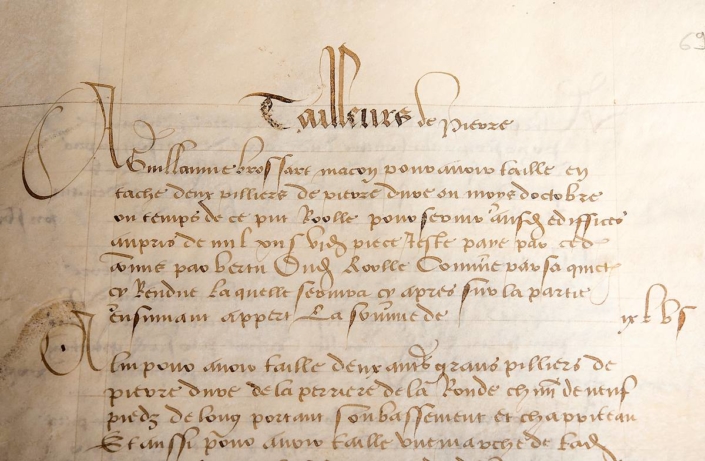 69
Tailleurs de pierre
A Guillaume brossart macon pour avoir taille en
tache deux pilliers de pierre dure ou moys doctobre
ou temps de ce pnt Roolle pour servir ausd ediffices
au pris de piece este paye par
par vertu dud Roolle Comme par sa quict
cy Rendue Laquelle servira cy apres sur la partie
ensuivant appert La somme de ix l b s
A luy pour avoir taille deux au grans pilliers de
pierre dure de la perriere de la Ronde de neuf
piedz de long portant soubassement et chappiteau
Et aussi pour avoir taille une marche de